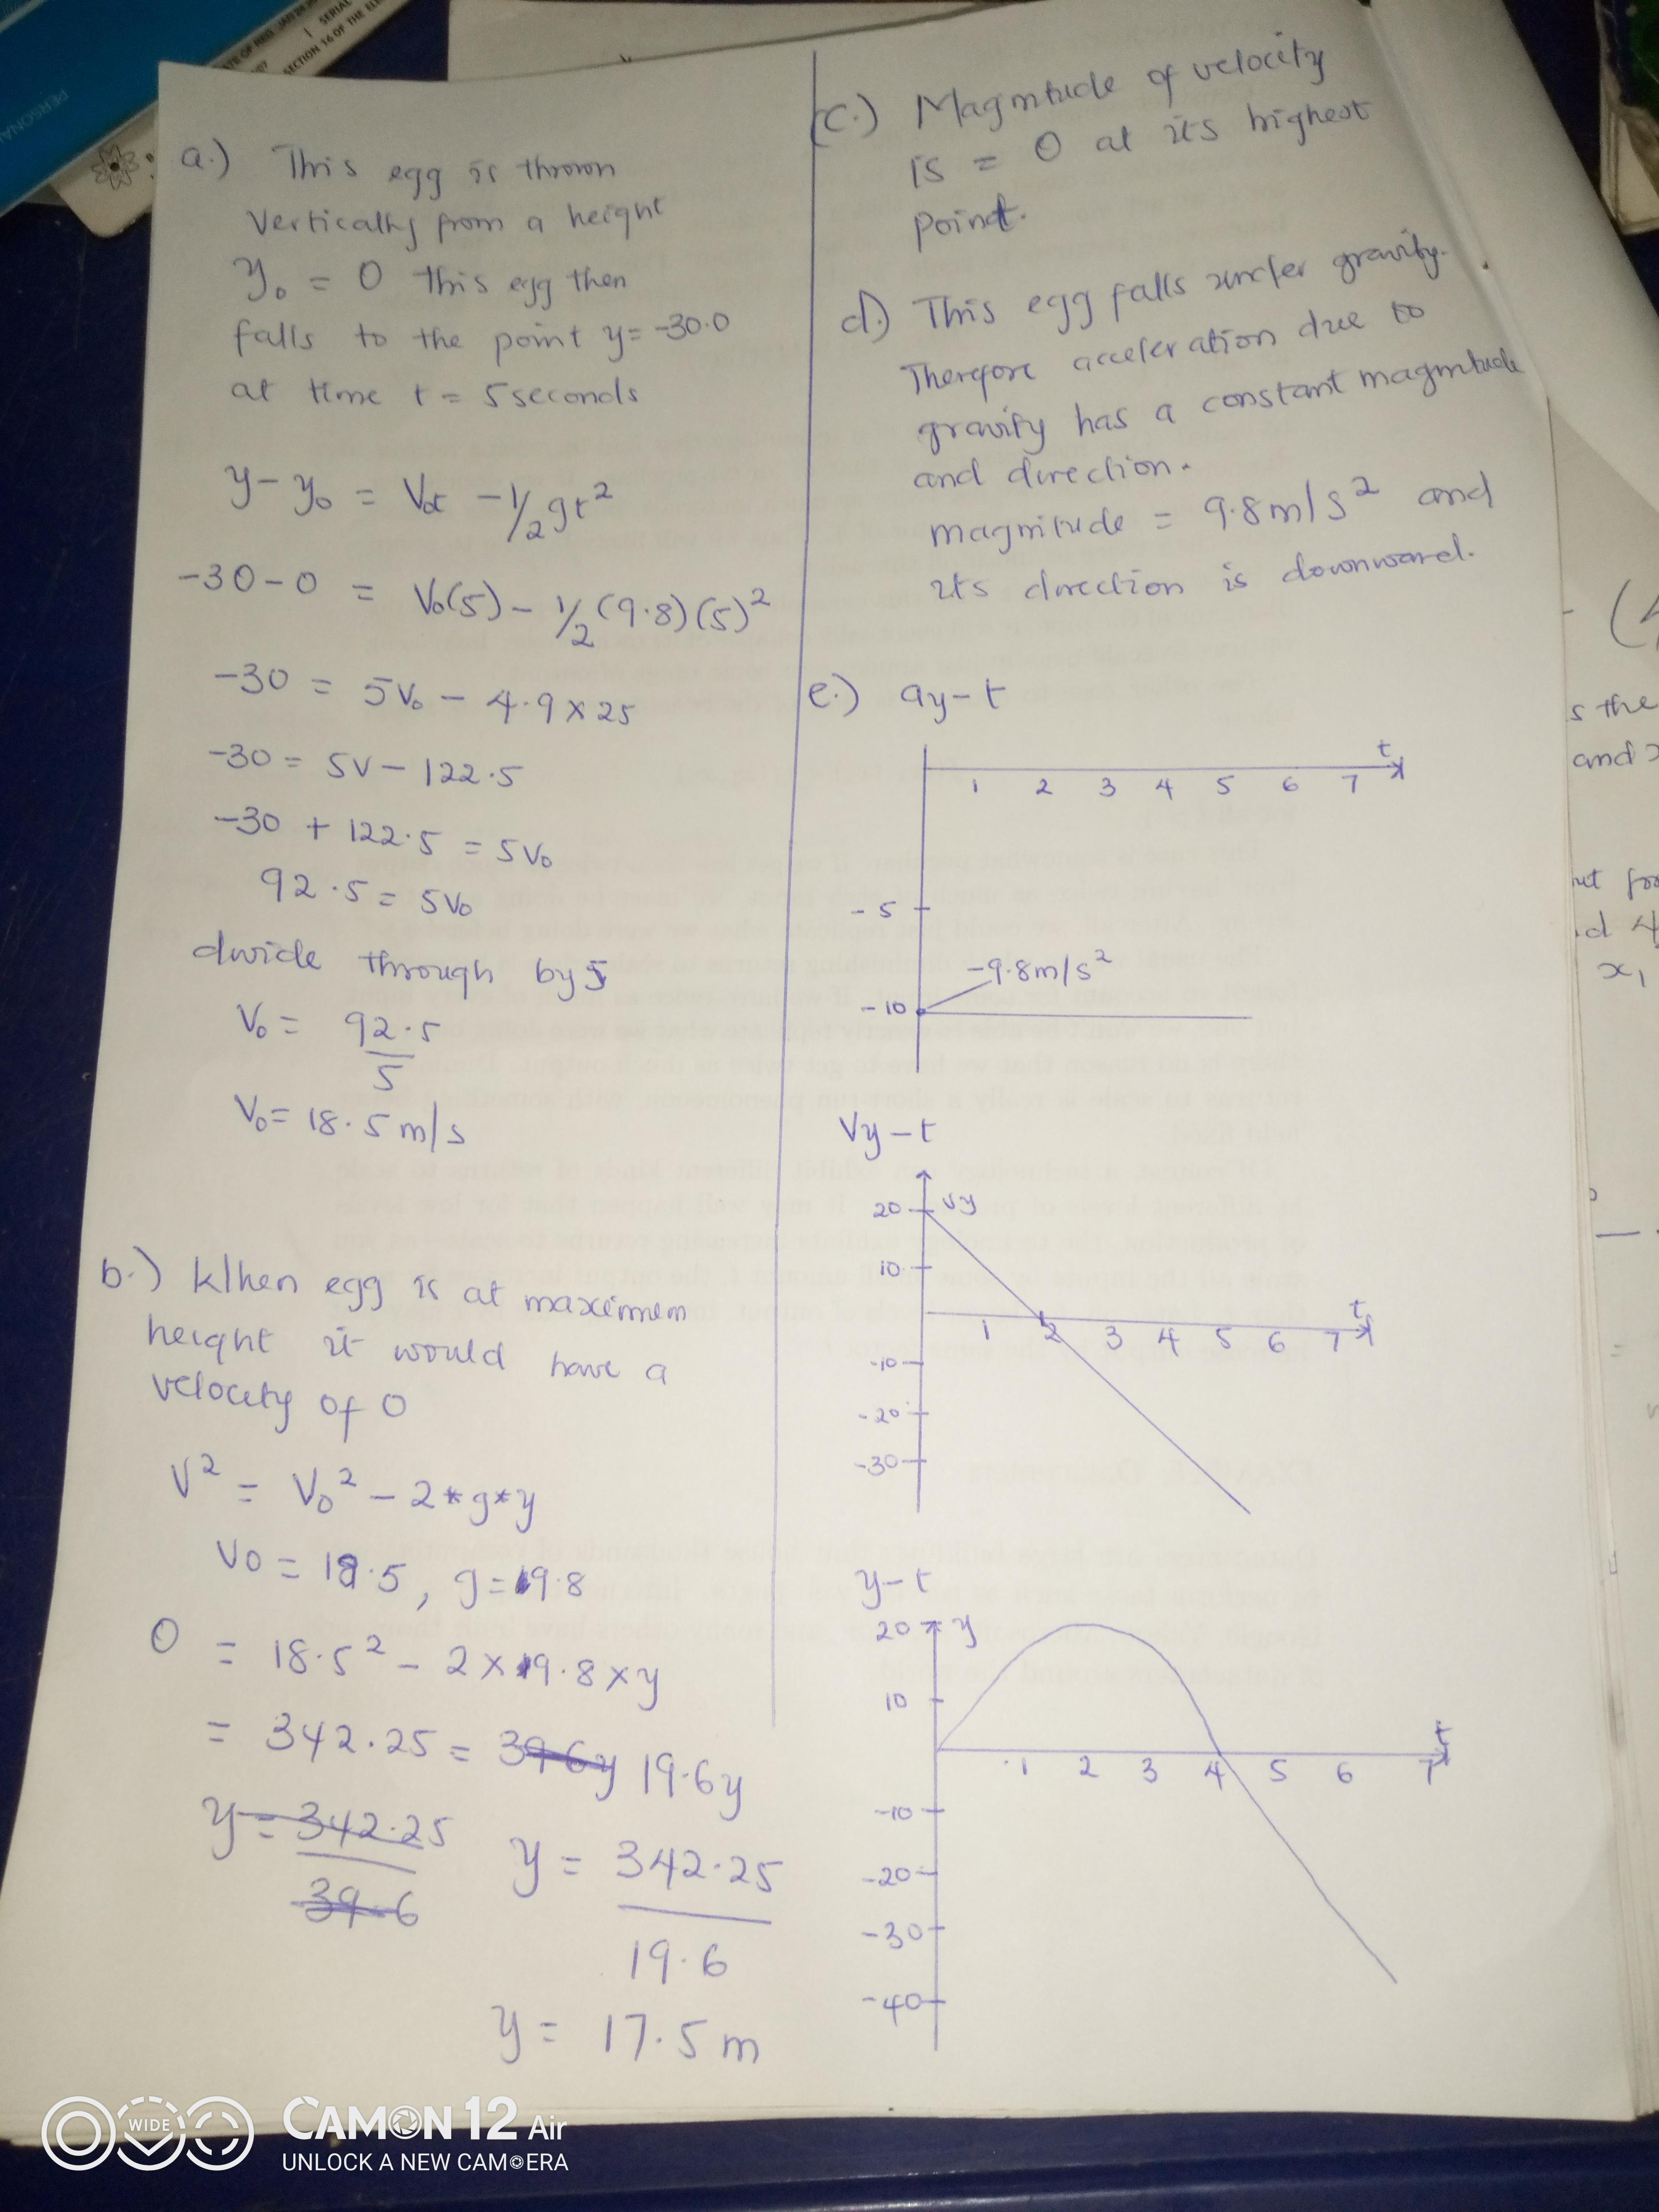 PERSONAL
SERIAL
SECTION 14 OF THE
a.) This egg is thrown
vertically from a height
y₀ = 0 this egg then
falls to the point y = -30.0
at time t = 5 seconds
y - y₀ = V₀t - 1/2 gt²
-30 - 0 = V₀(5) - 1/2 (9.8)(5)²
-30 = 5V₀ - 4.9 × 25
-30 = 5V - 122.5
-30 + 122.5 = 5V₀
92.5 = 5V₀
divide through by 5
V₀ = 92.5
5
V₀ = 18.5 m/s
b.) When egg is at maximum
height it would have a
velocity of 0
V² = V₀² - 2*g*y
V0 = 18.5, g = 9.8
0 = 18.5² - 2 × 9.8 × y
= 342.25 = 39.6y 19.6y
y = 342.25
39.6
y = 342.25
19.6
y = 17.5 m
(c.) Magnitude of velocity
is = 0 at its highest
point.
d.) This egg falls under gravity.
Therefore acceleration due to
gravity has a constant magnitude
and direction.
magnitude = 9.8 m/s² and
its direction is downward.
e.) ay - t
t
1 2 3 4 5 6 7
-5
-9.8 m/s²
-10
Vy - t
20 vy
10
t
1 2 3 4 5 6 7
-10
-20
-30
y - t
20 y
10
t
1 2 3 4 5 6 7
-10
-20
-30
-40
s the
and
x₁
WIDE
CAMON 12 Air
UNLOCK A NEW CAMERA